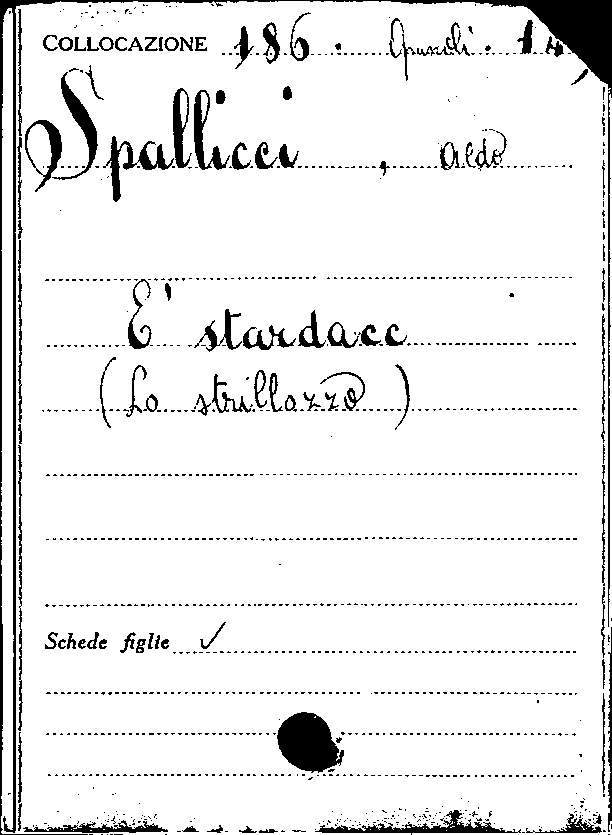 COLLOCAZIONE 186. Opuscoli.
Spallicci, Aldo
E' stardacc
(Lo strillozzo)
Schede figlie ✓